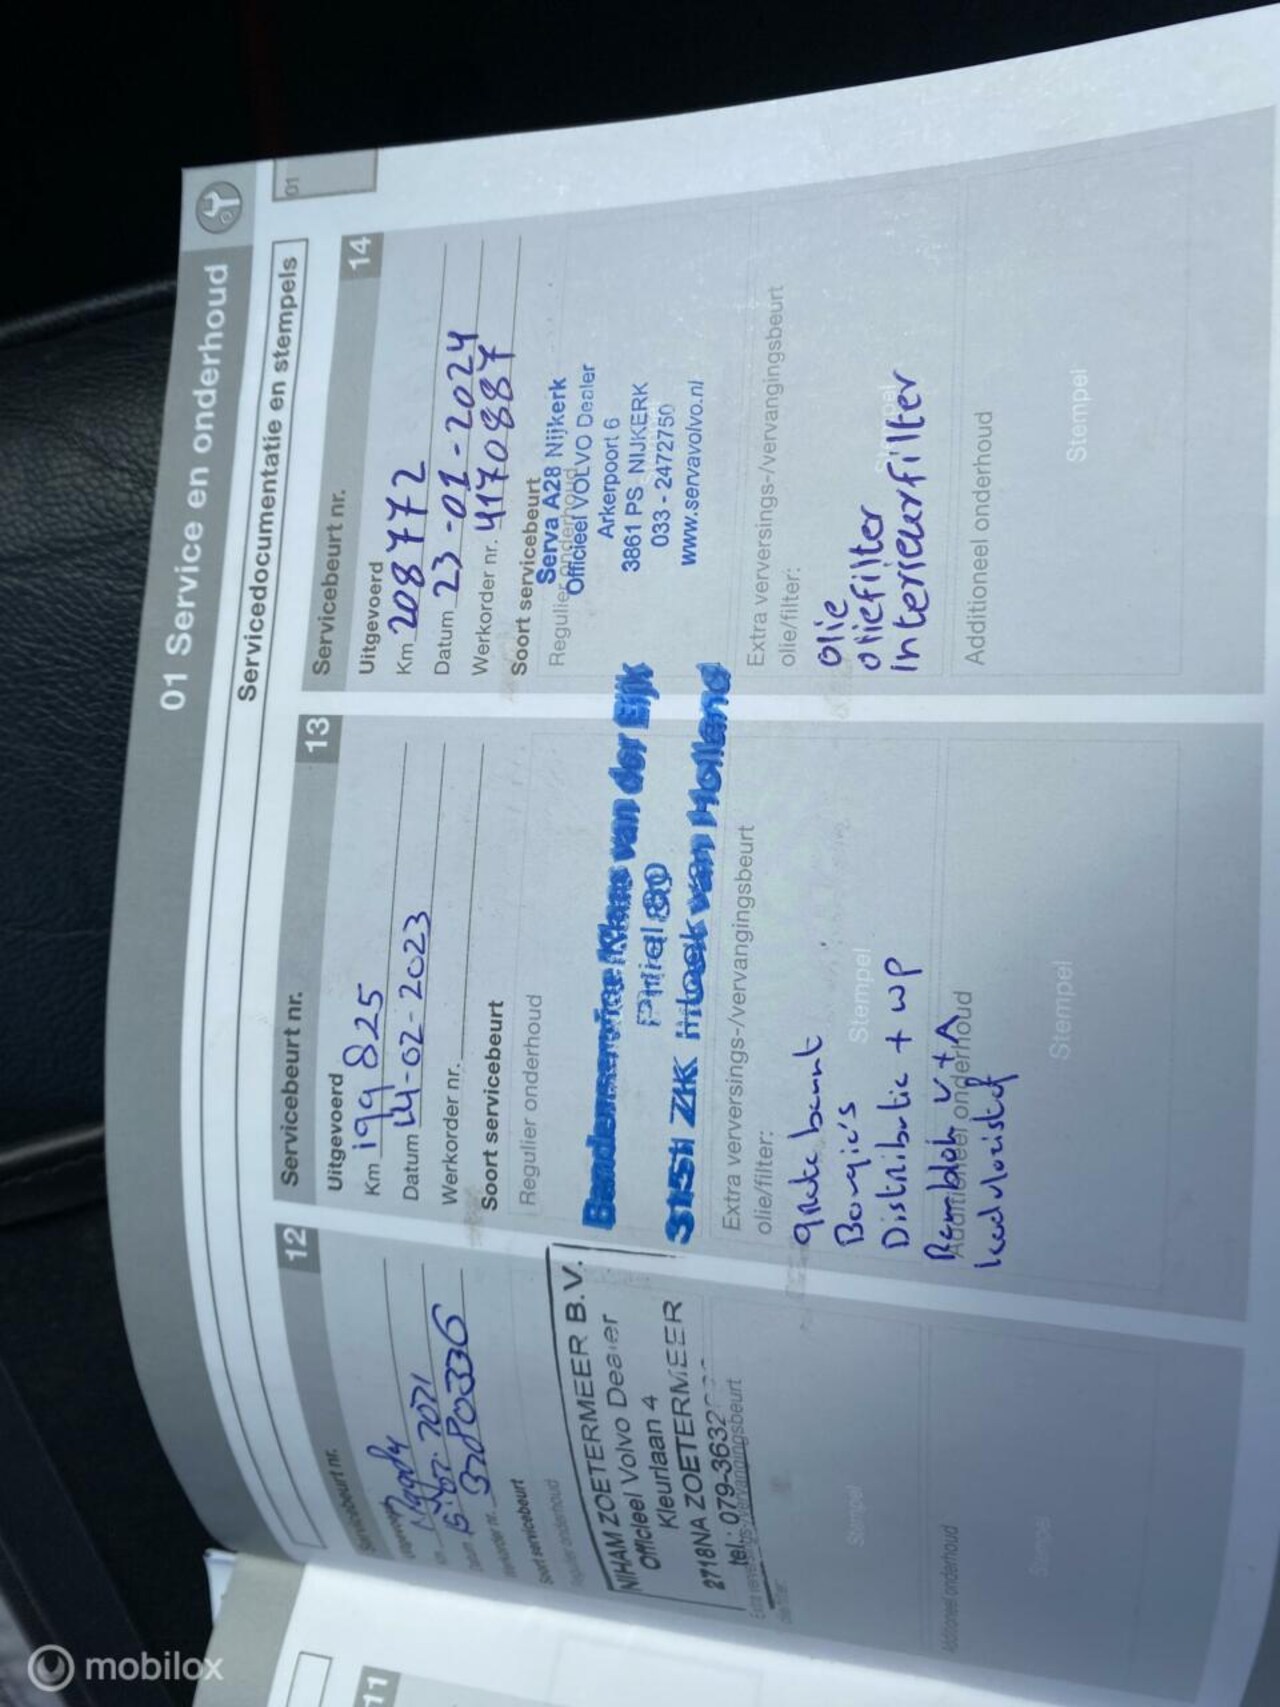 01 Service en onderhoud
Servicedocumentatie en stempels
01
11
Servicebeurt nr. 12
Uitgevoerd
Km
Datum 2021
Werkorder nr. 3780336
Soort servicebeurt
Regulier onderhoud
NIHAM ZOETERMEER B.V.
Officieel Volvo Dealer
Kleurlaan 4
2718NA ZOETERMEER
tel.: 079-3632
Stempel
Additioneel onderhoud
Stempel
Servicebeurt nr. 13
Uitgevoerd
Km 199825
Datum 14-02-2023
Werkorder nr.
Soort servicebeurt
Regulier onderhoud
Bandenservice Klaas van der Eijk
3151 ZK Hoek van Holland
Extra verversings-/vervangingsbeurt
olie/filter:
grote beurt
Bougie's
Stempel
Distributie + wp
Remblok v+A
Additioneel onderhoud
koelvloeistof
Stempel
Servicebeurt nr. 14
Uitgevoerd
Km 208772
Datum 23-01-2024
Werkorder nr. 4170887
Soort servicebeurt
Regulier onderhoud
Serva A28 Nijkerk
Officieel VOLVO Dealer
Arkerpoort 6
3861 PS NIJKERK
033 - 2472750
www.servavolvo.nl
Extra verversings-/vervangingsbeurt
olie/filter:
olie
oliefilter
Stempel
Interieurfilter
Additioneel onderhoud
Stempel
mobilox